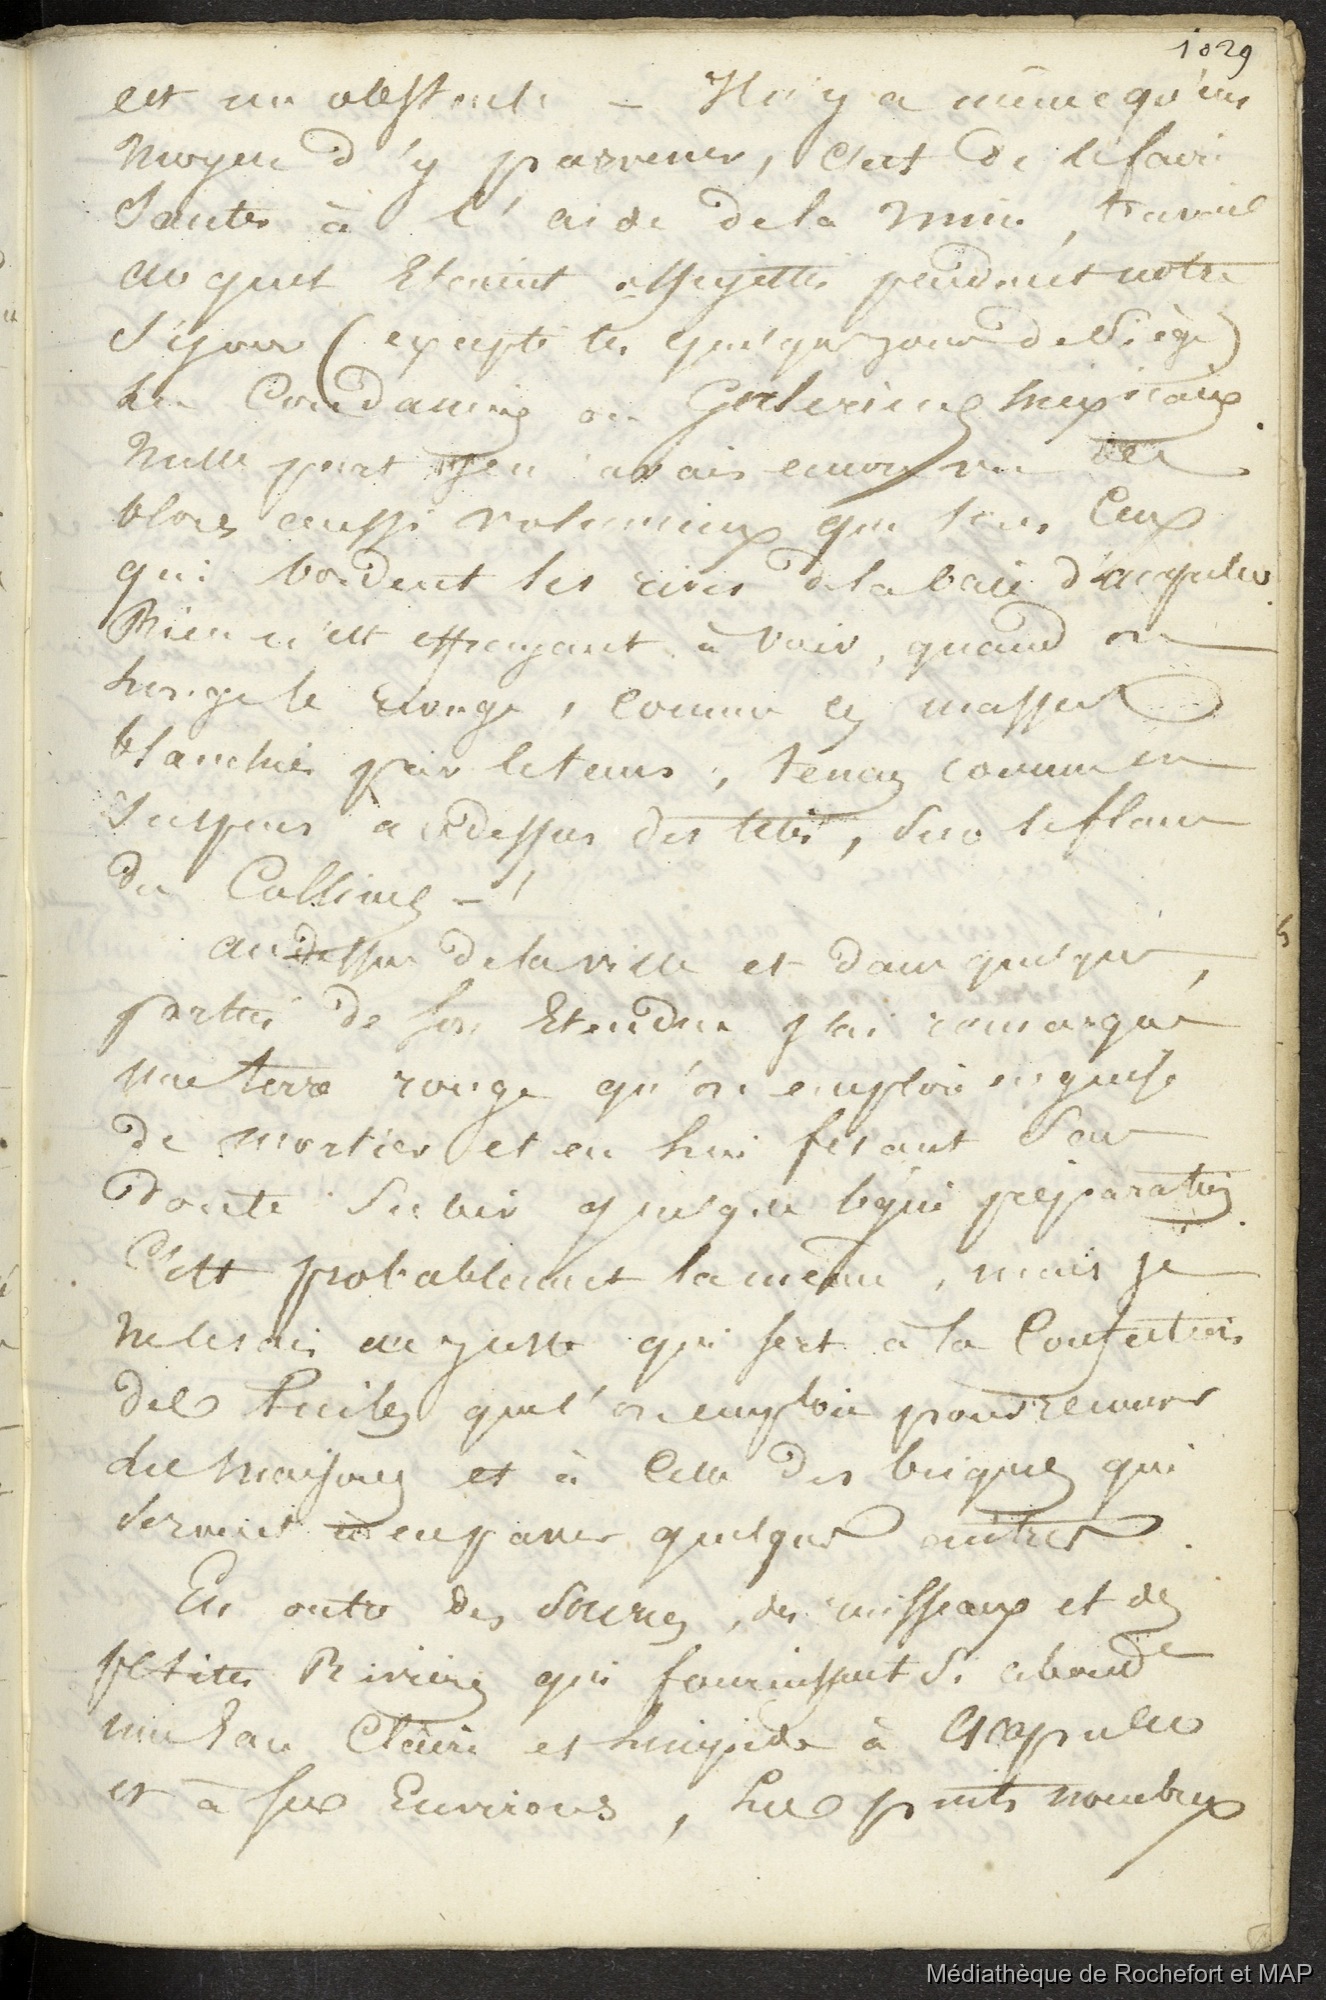 1029
est un obstacle – Il n'y a même qu'un
moyen d'y parvenir, c'est de le faire
sauter à l'aide de la mine, travail
auquel Etaient assujettis pendant notre
séjour (excepté les quelques jours de Siège)
les Condamnés ou Galeriens mexicains.
Nulle part je n'avais encore vu des
blocs aussi volumineux que sous Ceux
qui bordent les rives de la baie d'acapulco.
Rien n'est effrayant à voir, quand on
longe le rivage, comme ces masses
blanchies par le tems, tenues comme en
suspens au dessus des têtes, sur le flanc
des Collines – !
au dessus de la ville et dans quelques
parties de son Etendue j'ai remarqué
une terre rouge qu'on emploie en guise
de mortier et en lui fesant sans
doute subir quelque légère préparation.
C'est probablement la même, mais je
ne le sais au juste qui sert à la Confection
des Tuiles que l'on emploie pour recouvrir
les maisons et à Celle des briques qui
servent à en paver quelques autres.
En outre des Sources, des ruisseaux et des
petites Rivières qui fournissent si abondt
une Eau Claire et limpide à Acapulco
et à ses Environs, les puits nombreux
Médiathèque de Rochefort et MAP